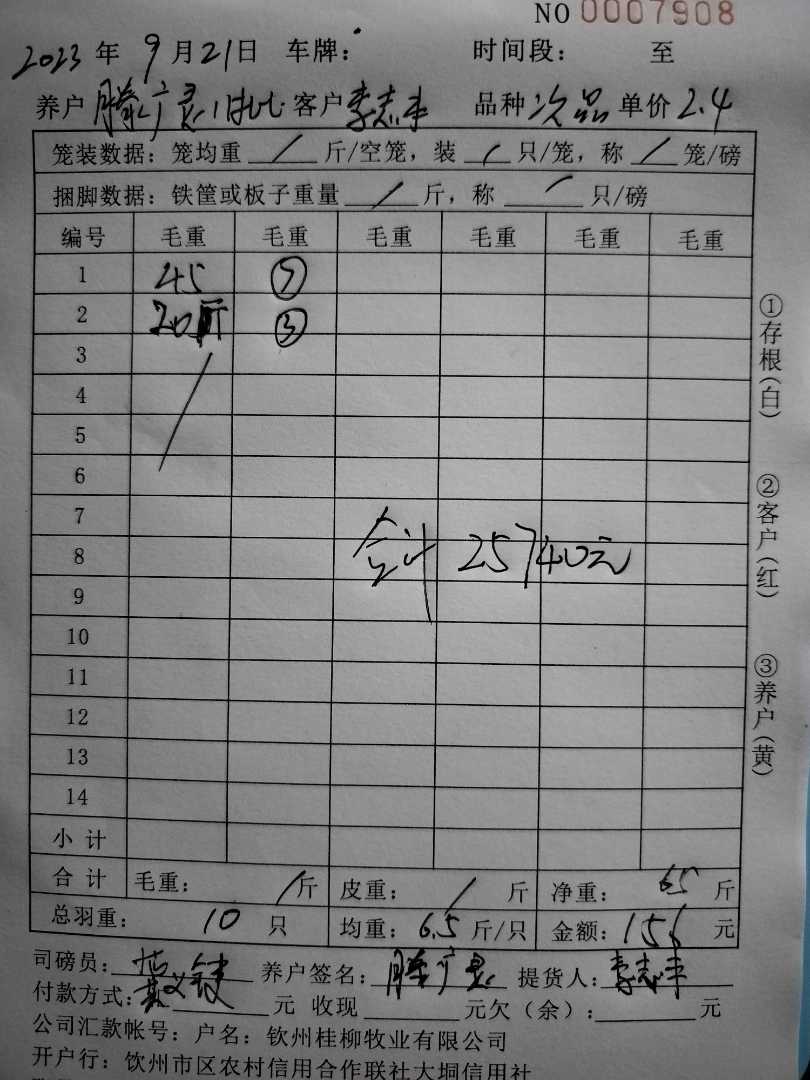 NO 0007908
2023 年 9 月 21 日 车牌: 时间段: 至
养户 滕广灵 客户 李志丰 品种 次品 单价 2.4
笼装数据: 笼均重 / 斤/空笼, 装 / 只/笼, 称 / 笼/磅
捆脚数据: 铁筐或板子重量 / 斤, 称 / 只/磅
编号 毛重 毛重 毛重 毛重 毛重 毛重
1 45 ⑦
2 20斤 ③
3
4
5
6
7
8
合计 25740元
9
10
11
12
13
14
小计
合计 毛重: / 斤 皮重: / 斤 净重: 65 斤
总羽重: 10 只 均重: 6.5 斤/只 金额: 156 元
司磅员: 养户签名: 滕广灵 提货人: 李志丰
付款方式: 元 收现 元欠(余): 元
公司汇款帐号: 户名: 钦州桂柳牧业有限公司
开户行: 钦州市区农村信用合作联社大垌信用社
①存根(白)
②客户(红)
③养户(黄)